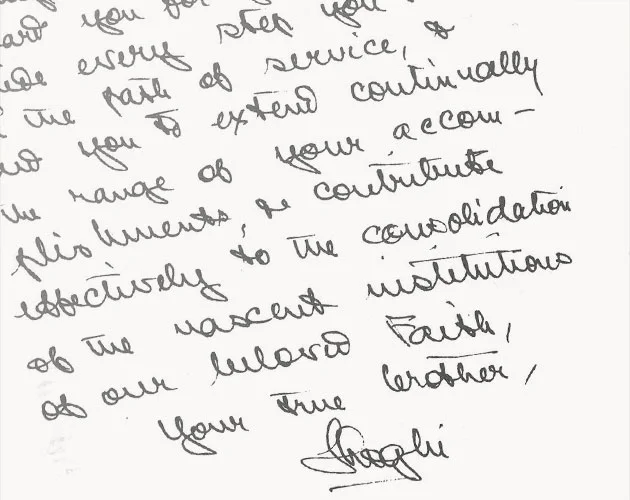 you for
you
every step you
the path of service, &
you to extend continually
the range of your accom-
plishments, & contribute
effectively to the consolidation
of the nascent institutions
of our beloved Faith,
Your true brother,
Shoghi